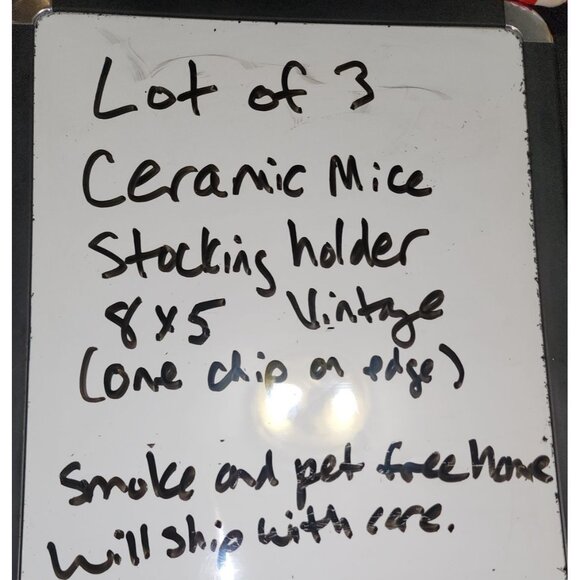 Lot of 3
Ceramic Mice
Stocking holder
8x5 Vintage
(one chip on edge)
Smoke and pet free home
Will ship with care.